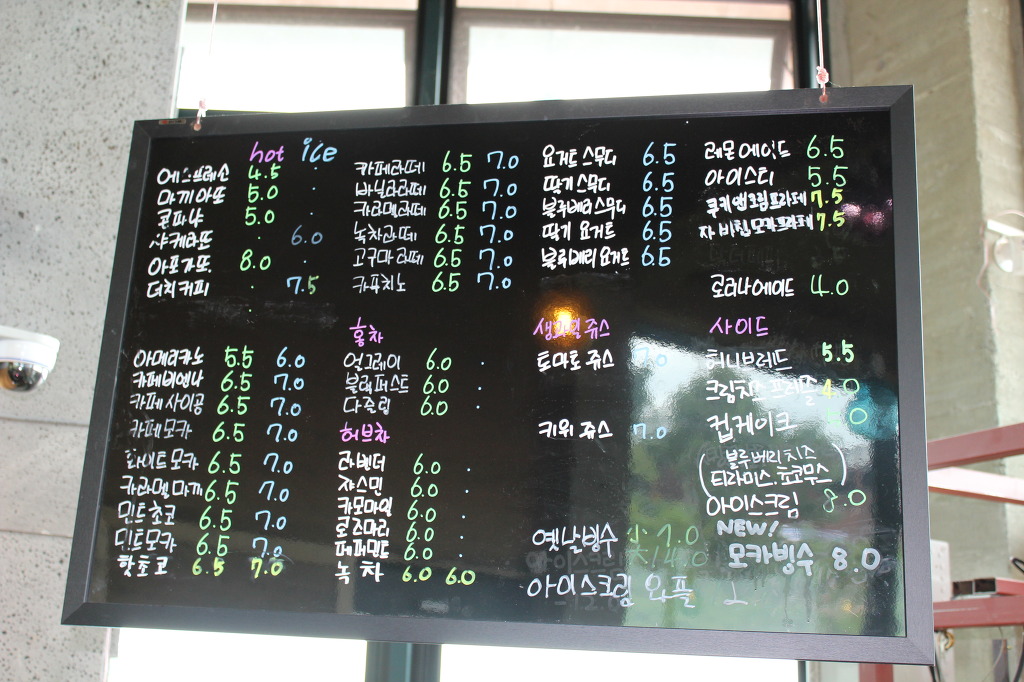 hot ice
에스프레소 4.5 .
마끼아또 5.0 .
콘파냐 5.0 .
샤케라또 . 6.0
아포가또. 8.0
더치커피 . 7.5
아메리카노 5.5 6.0
카페비엔나 6.5 7.0
카페사이공 6.5 7.0
카페모카 6.5 7.0
화이트모카 6.5 7.0
카라멜마끼 6.5 7.0
민트초코 6.5 7.0
민트모카 6.5 7.0
핫초코 6.5 7.0
카페라떼 6.5 7.0
바닐라라떼 6.5 7.0
카라멜라떼 6.5 7.0
녹차라떼 6.5 7.0
고구마라떼 6.5 7.0
카푸치노 6.5 7.0
홍차
얼그레이 6.0 .
블랙퍼스트 6.0 .
다즐링 6.0 .
허브차
라벤더 6.0 .
쟈스민 6.0 .
카모마일 6.0 .
로즈마리 6.0 .
페퍼민트 6.0 .
녹차 6.0 6.0
요거트스무디 6.5
딸기스무디 6.5
블루베리스무디 6.5
딸기 요거트 6.5
블루베리요거트 6.5
생과일쥬스
토마토쥬스 7.0
키위쥬스 7.0
옛날빙수 7.0
아이스크림 와플
레몬에이드 6.5
아이스티 5.5
쿠키앤크림프라페 7.5
자바칩모카프라페 7.5
오리나에이드 4.0
사이드
허니브레드 5.5
크림치즈프레즐 4.0
컵케이크
(블루베리치즈
티라미스.쵸코무스)
아이스크림 8.0
NEW!
모카빙수 8.0